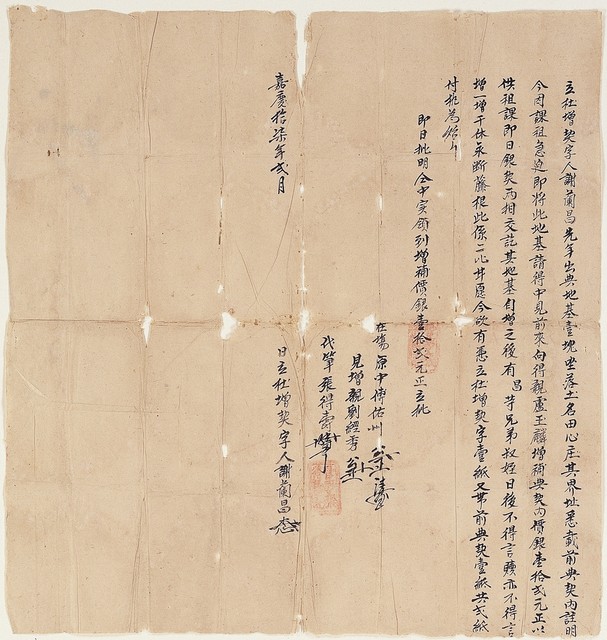 立杜增契字人謝蘭昌先年出典地基壹塊坐落土名田心庄其界址悉載前典契內註明
今因課租急迫即將此地基請得中見前來向得親盧玉麟增補典契內價銀壹拾弍元正以
供租課即日銀契兩相交訖其地基自增之後有昌等兄弟叔侄日後不得言贖亦不得言
增一增千休永斷藤根此係二比甘愿今欲有憑立杜增契字壹紙又帶前典契壹紙共弍紙
付執為炤
即日批明仝中實領到增補價銀壹拾弍元正立批
在場原中傅佑州
見增親劉經秀
代筆張得壽
嘉慶拾柒年弍月
日立杜增契字人謝蘭昌